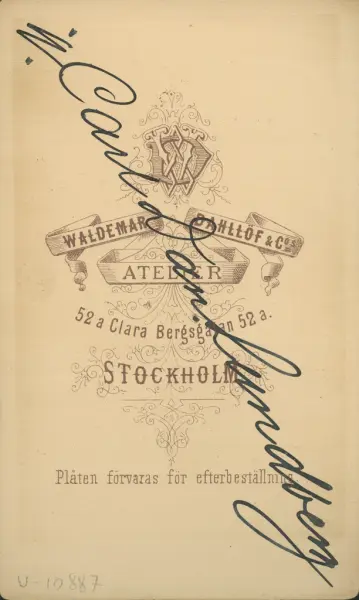 "Carl Dan. Lundberg
WD
WALDEMAR DAHLLÖF & Cos
ATELIER
52 a Clara Bergsgatan 52 a.
STOCKHOLM
Plåten förvaras för efterbeställning.
U-10887